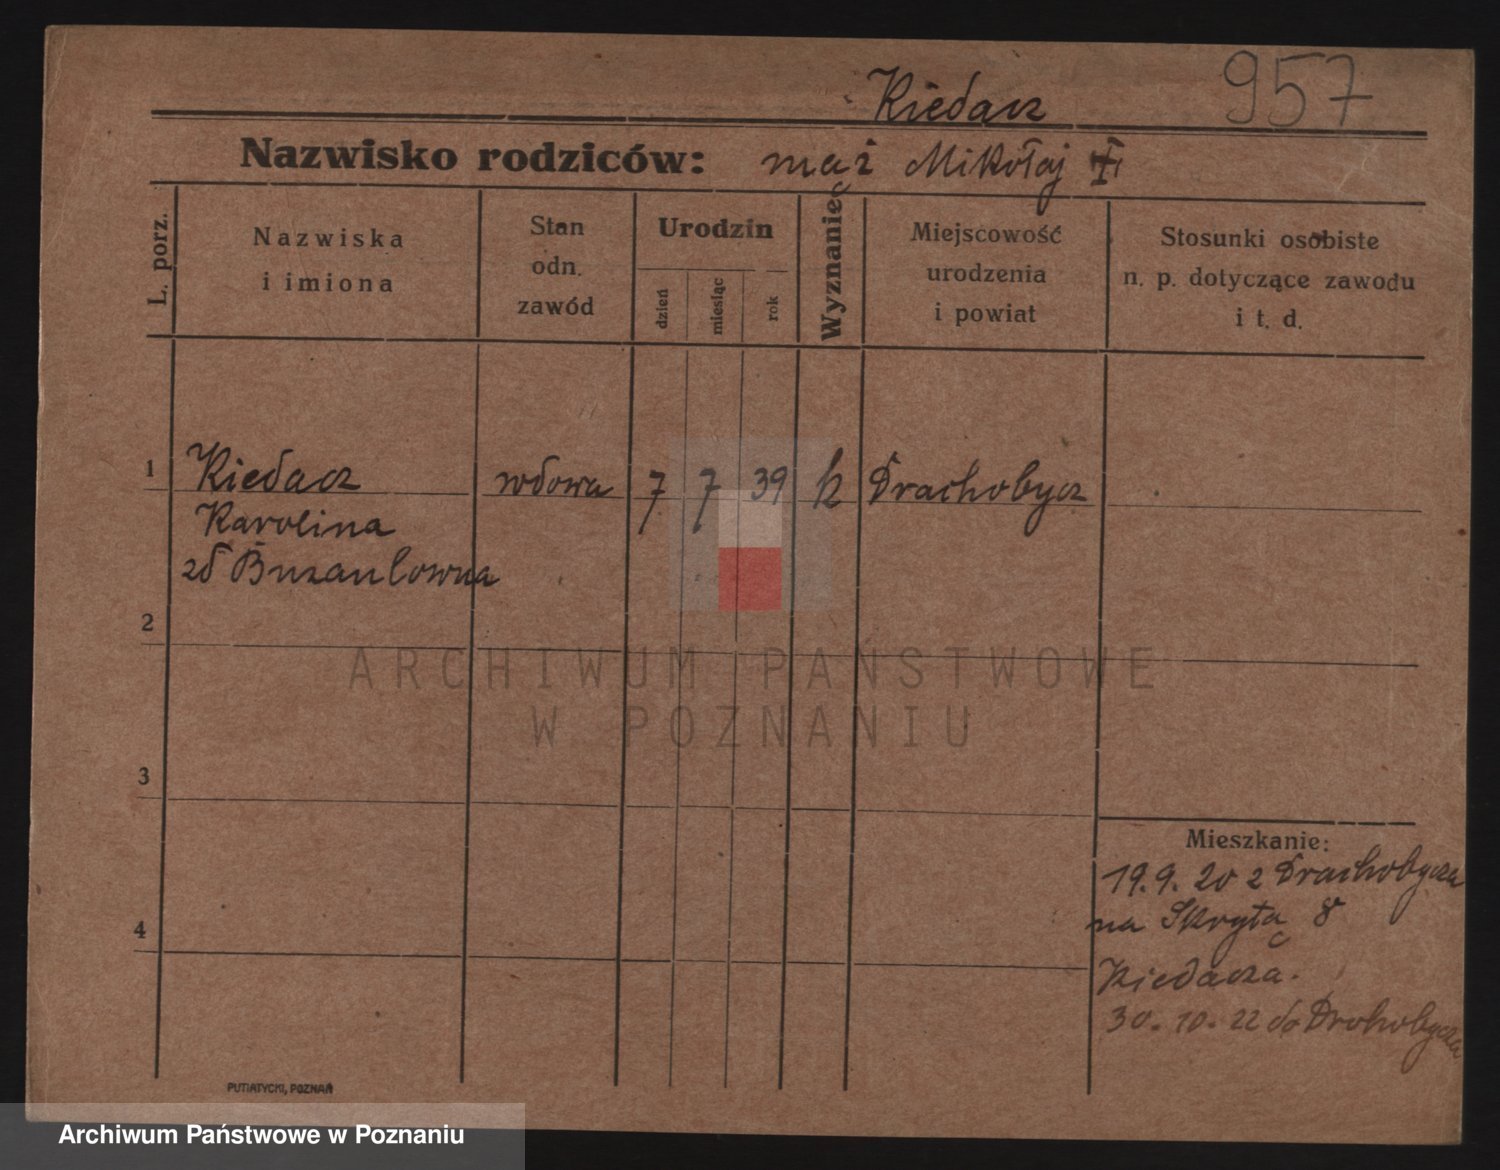 957
Kiedacz
Nazwisko rodziców: mąż Mikołaj
L. porz.
Nazwiska
i imiona
Stan
odn.
zawód
Urodzin
dzień
miesiąc
rok
Wyznanie
Miejscowość
urodzenia
i powiat
Stosunki osobiste
n. p. dotyczące zawodu
i t. d.
1 Kiedacz wdowa 7 7 39 k Drachobycz
Karolina
2
3
4
Mieszkanie:
19. 9. 20 z Drachobycza
na Skrytą 8
Kiedacza.
30. 10. 22 do Drohobycza
PUTIATYCKI, POZNAŃ
ARCHIWUM PAŃSTWOWE
W POZNANIU
Archiwum Państwowe w Poznaniu